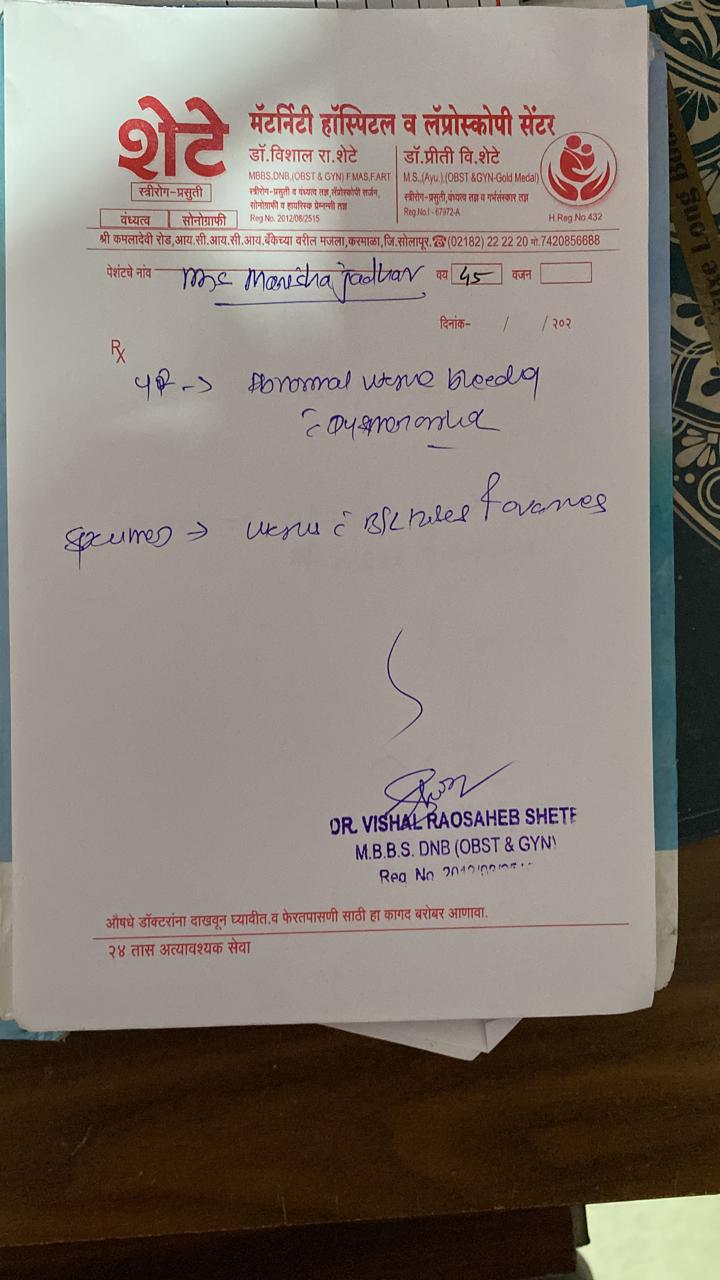 शेटे
स्त्रीरोग-प्रसुती
वंध्यत्व सोनोग्राफी
मॅटर्निटी हॉस्पिटल व लॅप्रोस्कोपी सेंटर
डॉ.विशाल रा.शेटे
MBBS,DNB,(OBST & GYN) F.MAS,F.ART
स्त्रीरोग-प्रसुती व वंध्यत्व तज्ञ,लॅप्रोस्कोपी सर्जन,
सोनोग्राफी व हायरिस्क प्रेग्नन्सी तज्ञ
Reg No. 2012/08/2515
डॉ.प्रीती वि.शेटे
M.S.,(Ayu.),(OBST &GYN-Gold Medal)
स्त्रीरोग-प्रसुती,वंध्यत्व तज्ञ व गर्भसंस्कार तज्ञ
Reg.No.I - 67972-A
H.Reg.No.432
श्री कमलादेवी रोड,आय.सी.आय.सी.आय.बँकेच्या वरील मजला,करमाळा,जि.सोलापूर.☎(02182) 22 22 20 मो.7420856688
पेशंटचे नांव Mrs Manisha Jadhav वय 45 वजन
दिनांक- / / २०२
Rx
Abnormal uterine bleeding
c̄ Dysmenorrhea
Specimen → uterus c̄ B/L tubes & ovaries
DR. VISHAL RAOSAHEB SHETE
M.B.B.S. DNB (OBST & GYN)
Reg No
औषधे डॉक्टरांना दाखवून घ्यावीत.व फेरतपासणी साठी हा कागद बरोबर आणावा.
२४ तास अत्यावश्यक सेवा